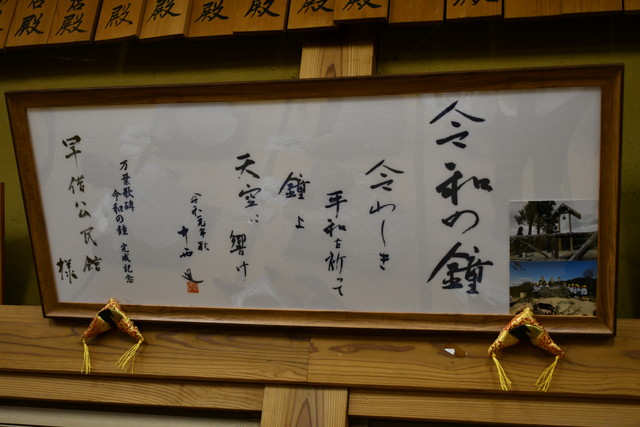 殿
殿
殿
殿
殿
殿
殿
殿
令和の鐘
令わしき
平和を祈って
鐘よ
天空に響け
令和元年 中西進
万葉歌碑
令和の鐘 完成記念
早借公民館 様